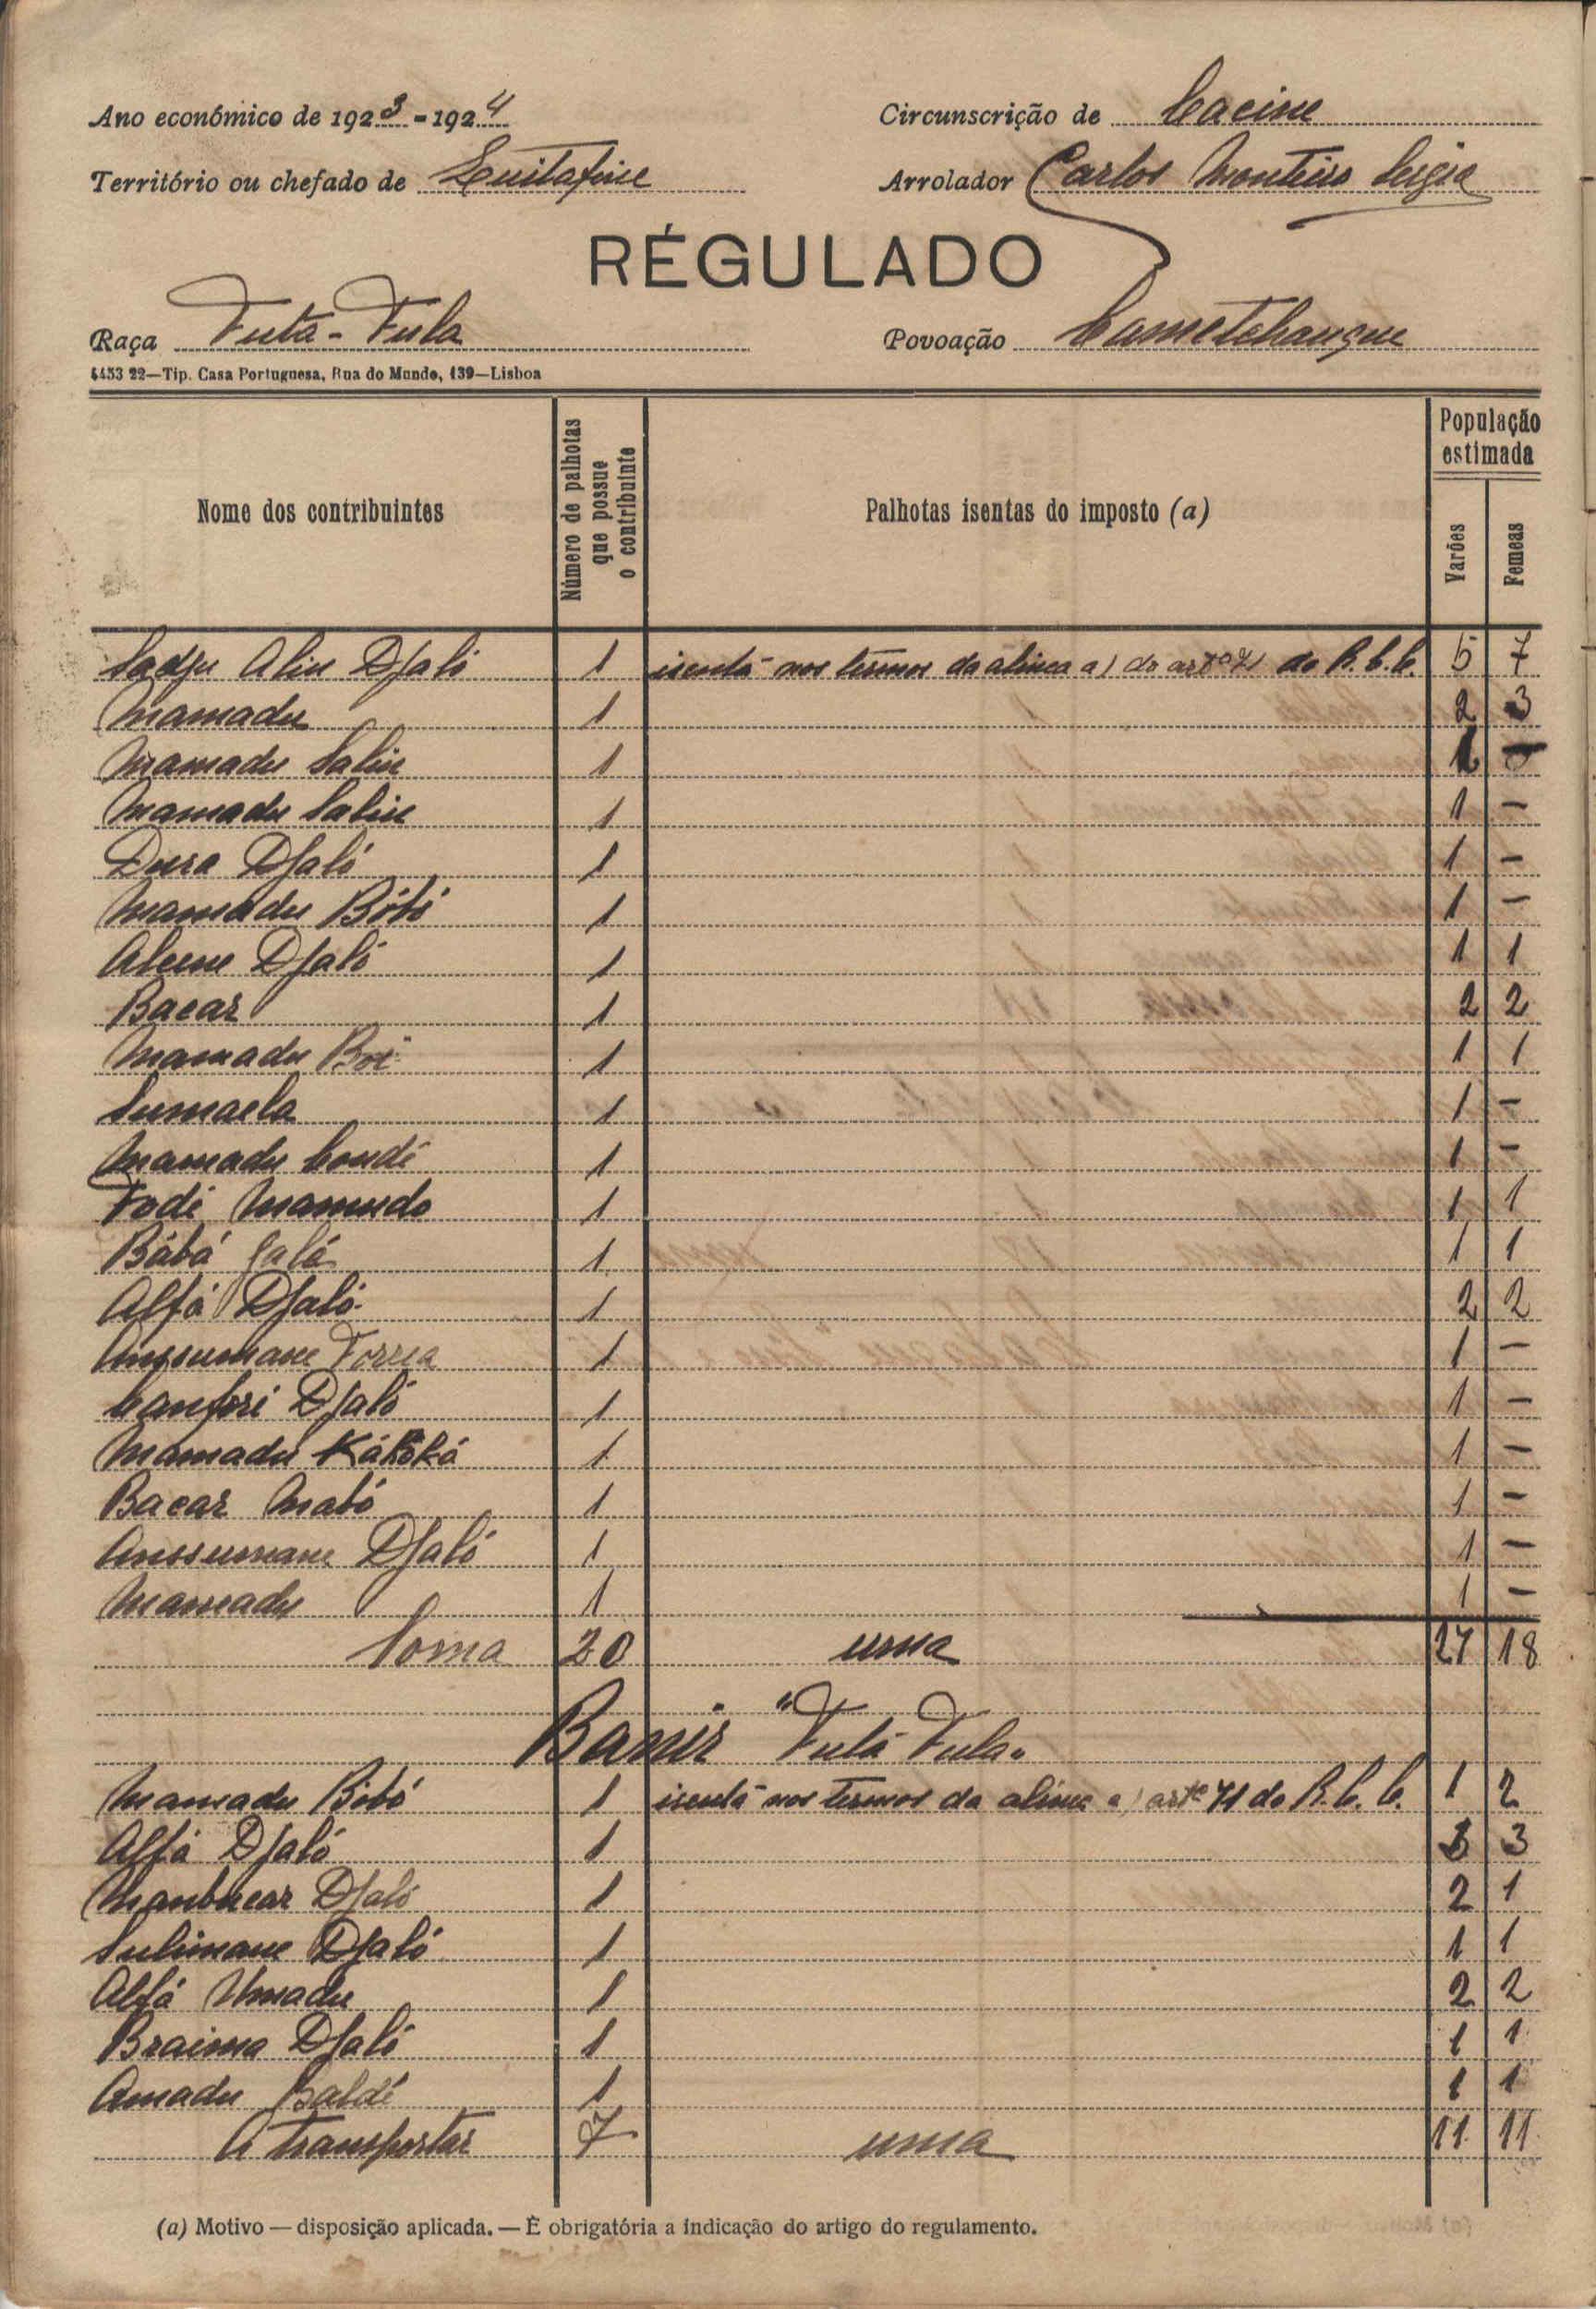 Ano económico de 1923-1924
Circunscrição de Cacine
Território ou chefado de Quitafine
Arrolador Carlos Monteiro
RÉGULADO
Raça Futa-Fula
Povoação Cametchangue
4453 22—Tip. Casa Portuguesa, Rua do Mundo, 139—Lisboa
Nome dos contribuintes
Número de palhotas que possue o contribuinte
Palhotas isentas do imposto (a)
População estimada
Varões
Femeas
Sadju Aliu Djaló 1 isenta nos termos da alinea a) do artº 71 do R.C.C. 5 7
Mamadu 1 2 3
Mamadu Saliu 1 1 -
Mamadu Saliu 1 1 -
Dura Djaló 1 1 -
Mamadu Bóbó 1 1 -
Aleune Djaló 1 1 1
Bacar 1 2 2
Mamadu Boi 1 1 1
Sumaela 1 1 -
Mamadu Condé 1 1 -
Fodé Mamudo 1 1 1
Bábá Jaló 1 1 1
Alfá Djaló 1 2 2
Anssumane Forrea 1 1 -
Canfori Djaló 1 1 -
Mamadu 1 1 -
Bacar Mató 1 1 -
Anssumane Djaló 1 1 -
Mamadu 1 1 -
Soma 20 uma 27 18
Banir "Futá Fula"
Mamadu Bobó 1 isenta nos termos da alinea a) artº 71 do R.C.C. 1 2
Alfá Djaló 1 3 3
Manbucar Djaló 1 2 1
Sulimane Djaló 1 1 1
Alfá Umadu 1 2 2
Braima Djaló 1 1 1
Amadu Baldé 1 1 1
A transportar 7 uma 11 11
(a) Motivo — disposição aplicada. — É obrigatória a indicação do artigo do regulamento.